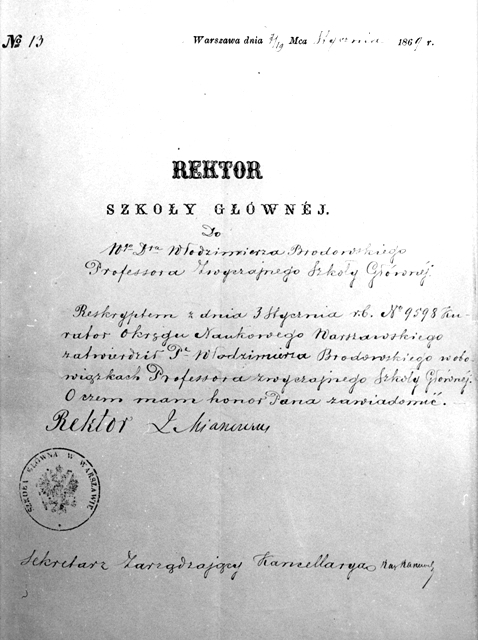 № 13
Warszawa dnia 7/19 Mca Stycznia 1869 r.
REKTOR
SZKOŁY GŁÓWNÉJ.
Do
Wgo Dra Włodzimierza Brodowskiego
Professora Zwyczajnego Szkoły Głównéj.
Reskryptem z dnia 3 Stycznia r.b. No 9598 Ku-
rator Okręgu Naukowego Warszawskiego
zatwierdził Pa Włodzimierza Brodowskiego w obo-
wiązkach Professora zwyczajnego Szkoły Głównéj.
O czem mam honor Pana zawiadomić. —
Rektor
SZKOŁA GŁÓWNA W WARSZAWIE
Sekretarz Zarządzający Kancellaryą